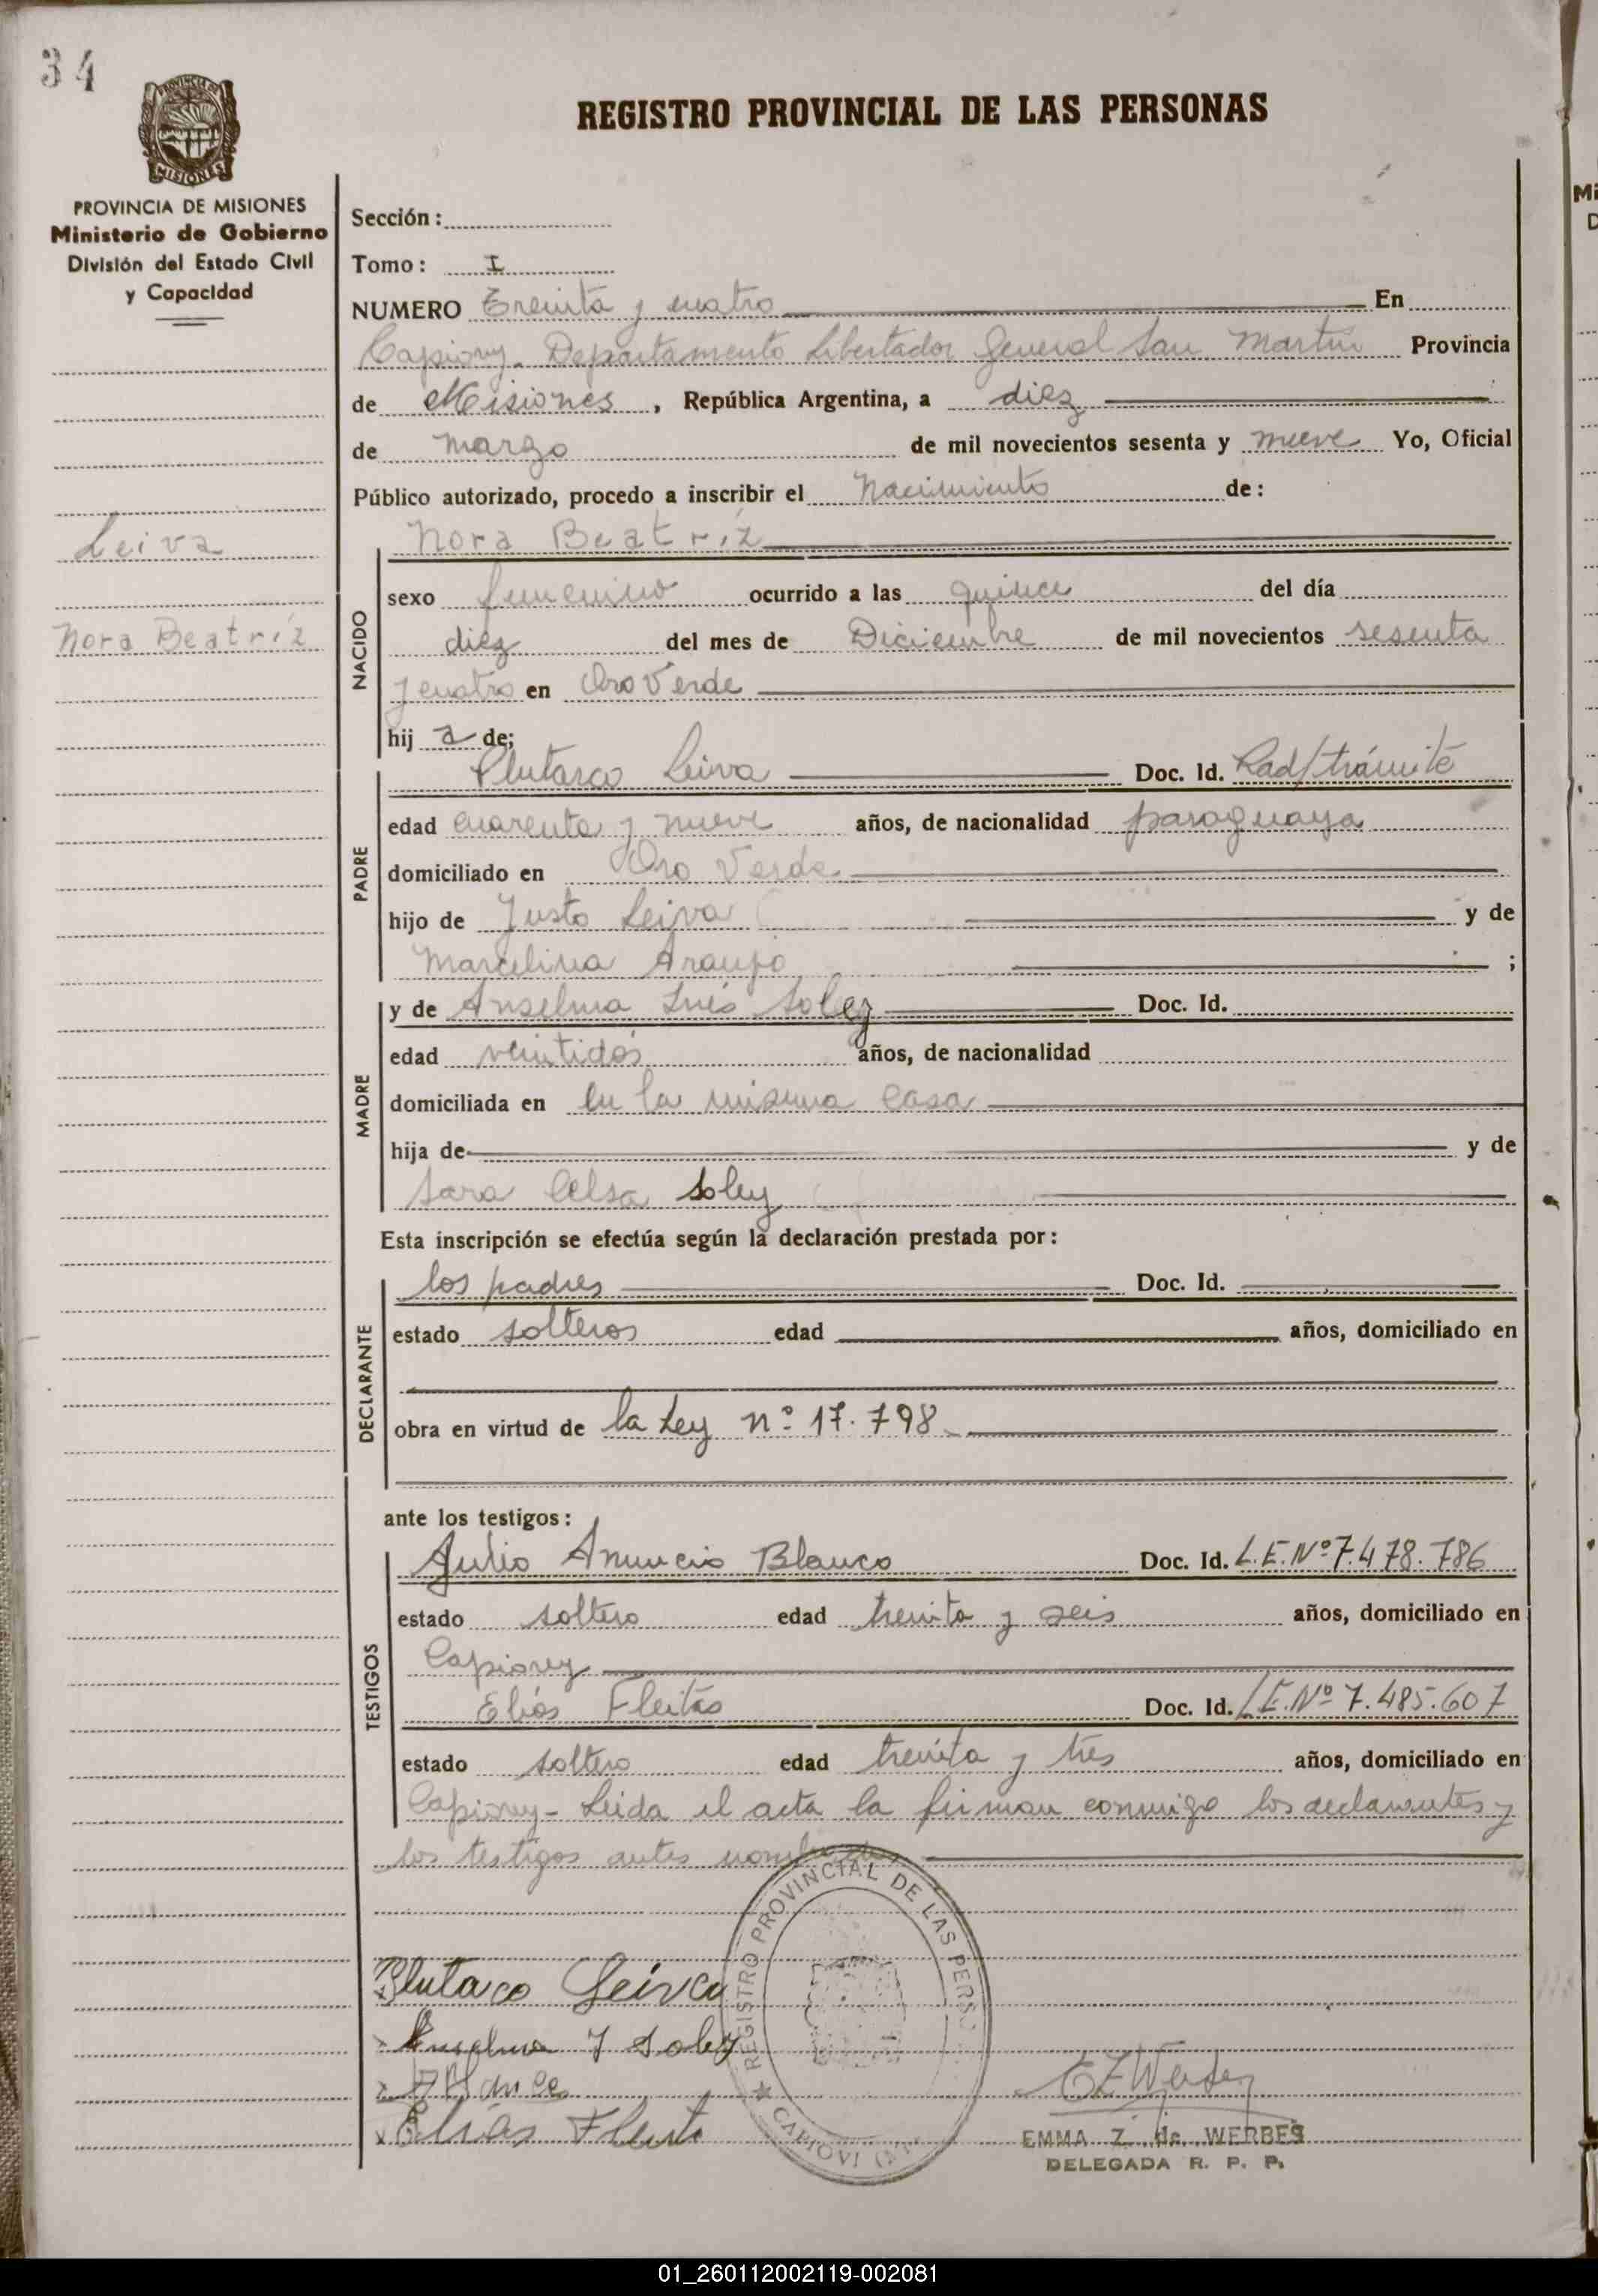 34
PROVINCIA DE MISIONES
REGISTRO PROVINCIAL DE LAS PERSONAS
PROVINCIA DE MISIONES
Ministerio de Gobierno
División del Estado Civil
y Capacidad
Sección:
Tomo: I
NUMERO Treinta y cuatro En
Capiovy. Departamento Libertador General San Martin Provincia
de Misiones, República Argentina, a diez
de marzo de mil novecientos sesenta y nueve Yo, Oficial
Público autorizado, procedo a inscribir el Nacimiento de:
Leiva
Nora Beatriz
Nora Beatriz
NACIDO
sexo femenino ocurrido a las quince del día
diez del mes de Diciembre de mil novecientos sesenta
y cuatro en Oro Verde
hij a de;
PADRE
Plutarco Leiva Doc. Id. Rad/trámite
edad cuarenta y nueve años, de nacionalidad paraguaya
domiciliado en Oro Verde
hijo de Justo Leiva y de
Marcelina Araujo ;
MADRE
y de Anselma Inés Soley Doc. Id.
edad veintidós años, de nacionalidad
domiciliada en en la misma casa
hija de y de
Sara Celsa Soley
Esta inscripción se efectúa según la declaración prestada por:
DECLARANTE
los padres Doc. Id.
estado solteros edad años, domiciliado en
obra en virtud de la Ley nº 17.798
ante los testigos:
TESTIGOS
Julio Anuncio Blanco Doc. Id. L.E.Nº 7.478.786
estado soltero edad treinta y seis años, domiciliado en
Capiovy
Elías Fleitas Doc. Id. L.E.Nº 7.485.607
estado soltero edad treinta y tres años, domiciliado en
Capiovy - Leida el acta la firman conmigo los declarantes y
los testigos antes nombrados
REGISTRO PROVINCIAL DE LAS PERSO
CAPIOVI
Plutarco Leiva
Anselma I Soley
Blanco
Elías Fleita
EMMA Z. de WERBES
DELEGADA R. P. P.
01_260112002119-002081